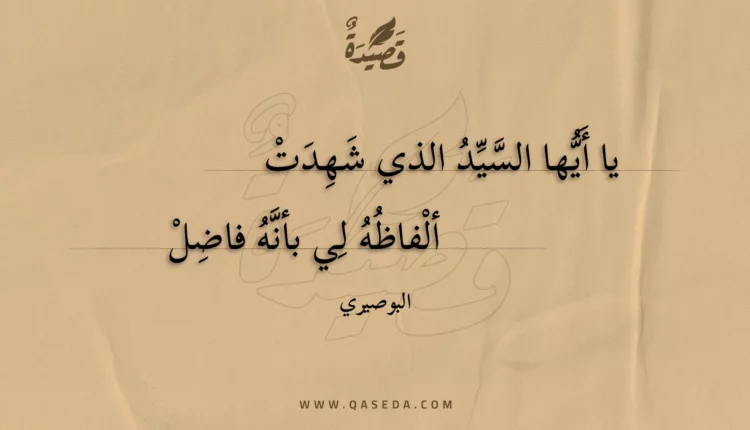 قَصِيْدَةٌ
يا أَيُّها السَّيِّدُ الذي شَهِدَتْ
ألْفاظُهُ لِي بأنَّهُ فاضِلْ
البوصيري
WWW.QASEDA.COM